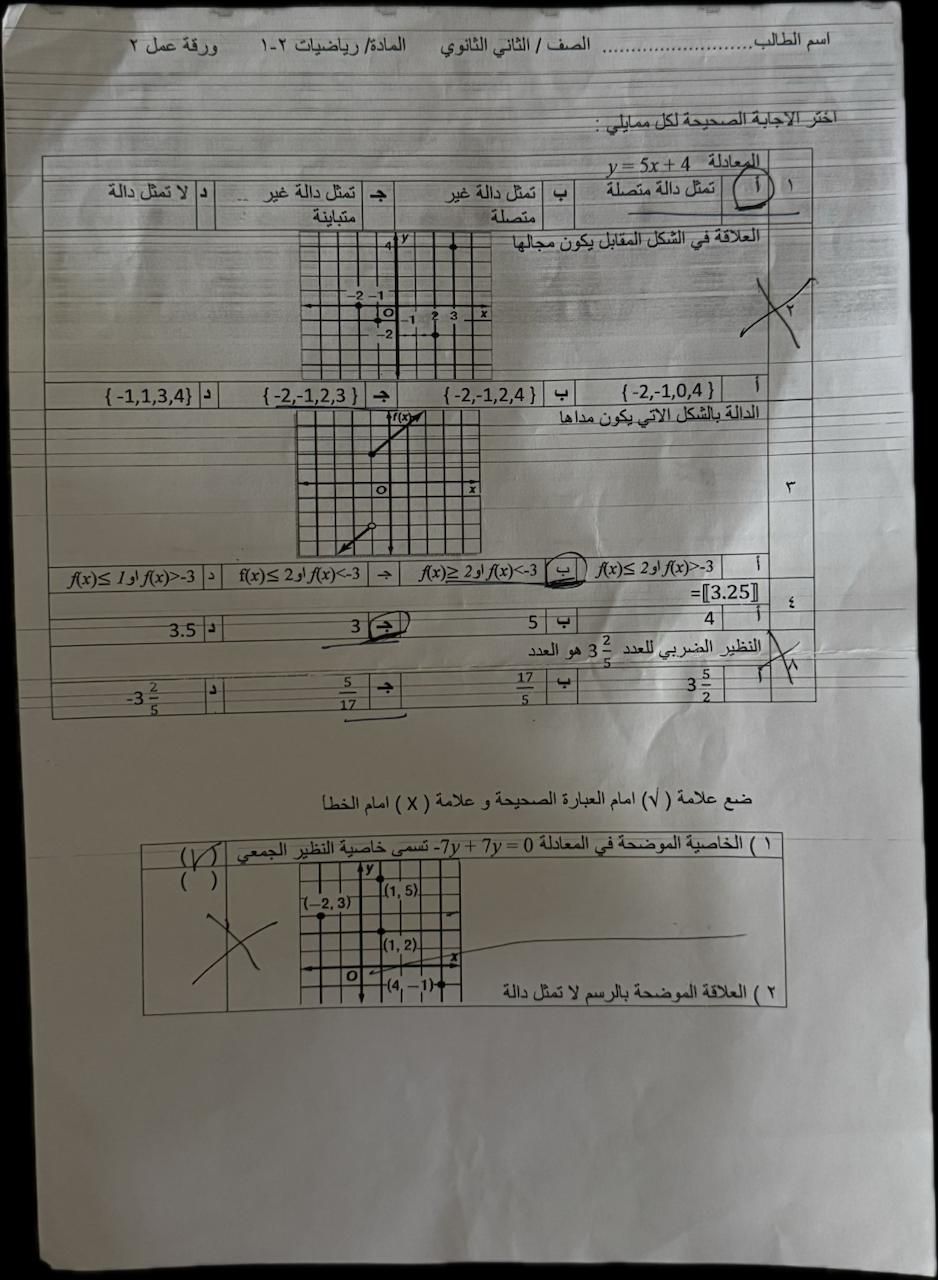 اسم الطالب........................... الصف / الثاني الثانوي المادة/ رياضيات ٢-١ ورقة عمل ٢
اختر الاجابة الصحيحة لكل ممايلي :
١ المعادلة y = 5x + 4
أ تمثل دالة متصلة ب تمثل دالة غير متصلة جـ تمثل دالة غير متباينة د لا تمثل دالة
٢ العلاقة في الشكل المقابل يكون مجالها
4 y
-2 -1
O -1 2 3 x
-2
أ { -2,-1,0,4 } ب { -2,-1,2,4 } جـ { -2,-1,2,3 } د { -1,1,3,4}
٣ الدالة بالشكل الاتي يكون مداها
f(x)
O x
أ f(x)≤ 2 او f(x)>-3 ب f(x)≥ 2 او f(x)<-3 جـ f(x)≤ 2 او f(x)<-3 د f(x)≤ 1 او f(x)>-3
٤ =⟦3.25⟧
أ 4 ب 5 جـ 3 د 3.5
النظير الضربي للعدد 3 2/5 هو العدد
أ 3 5/2 ب 17/5 جـ 5/17 د -3 2/5
ضع علامة (√) امام العبارة الصحيحة و علامة ( X ) امام الخطأ
١ ) الخاصية الموضحة في المعادلة -7y + 7y = 0 تسمى خاصية النظير الجمعي (√)
( )
y
(1, 5)
(−2, 3)
(1, 2)
O x
(4, −1)
٢ ) العلاقة الموضحة بالرسم لا تمثل دالة